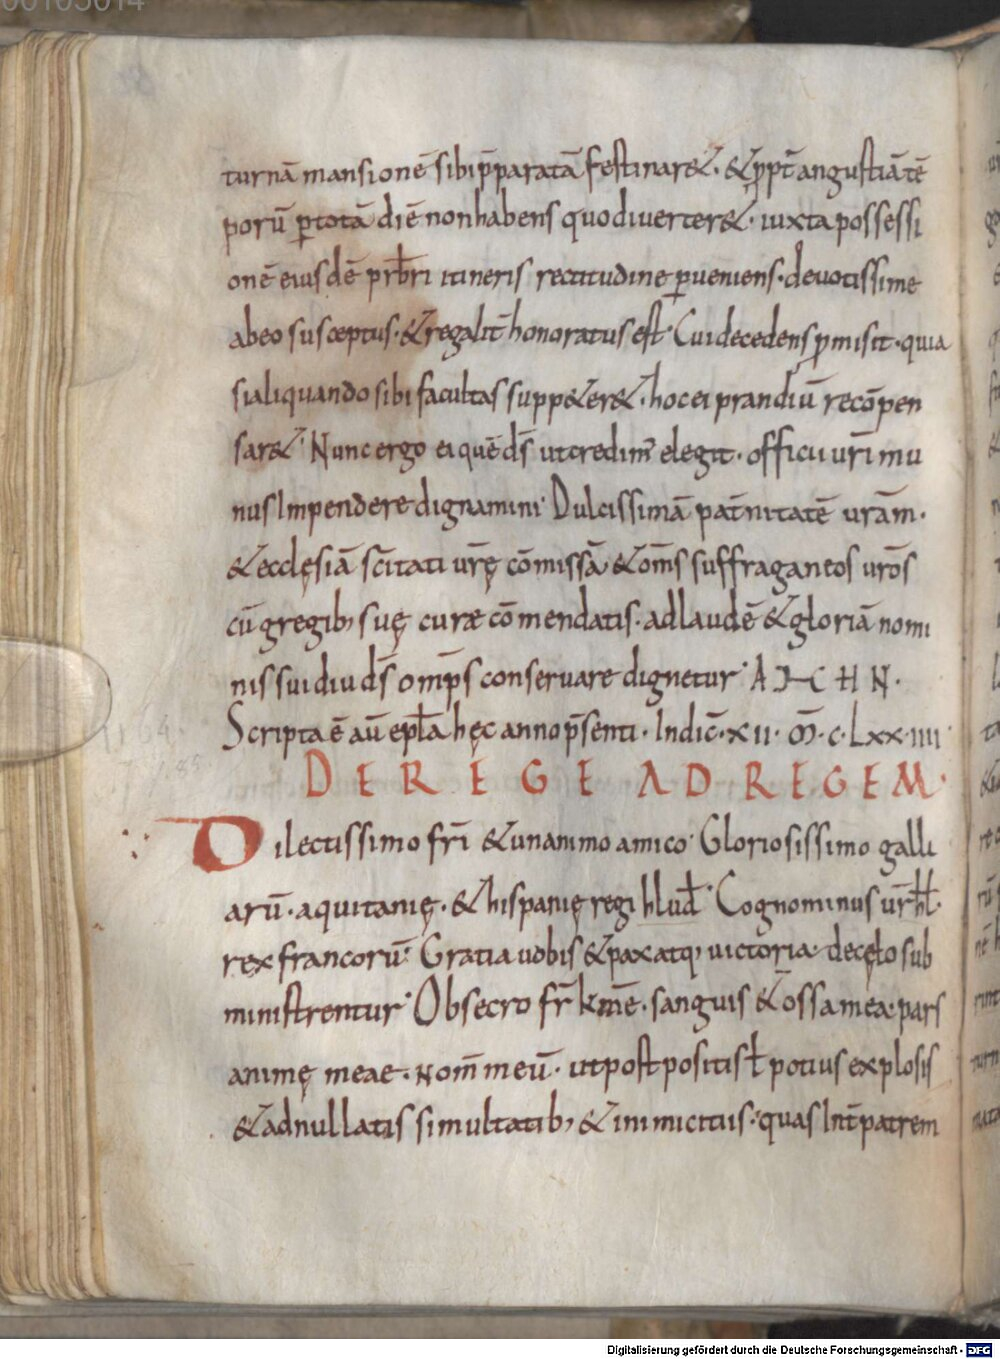 00103014
turnā mansionē sibi p̄paratā festinar&. & ꝓpt̄ angustiā tē
porū ꝑ totā diē non habens quo diverter&. iuxta possessi
onē eiusdē prb̄ri itineris rectitudine ꝑueniens. deuotissime
ab eo susceptus. & regalit̄ honoratus est. Cui decedens ꝓmisit. quia
si aliquando sibi facultas supp&er&. hoc ei prandiū recōpen
sar&. Nunc ergo ei quē ds̄ ut credim' elegit. officii ur̄i mu
nus Impendere dignamini. Dulcissimā pat̄nitatē urām.
& ecclęsiā sc̄itati ur̄ę cōmissā. & om̄s suffraganeos urōs
cū gregib; suę curæ cōmendatis. ad laudē & gloriā nomi
nis sui diu ds̄ omp̄s conseruare dignetur. A H C H N.
Scripta ē aū epl̄a hęc anno p̄senti. Indic̄. xii. ω̄. c. Lxx. iiii
DE REGE AD REGEM.
Dilectissimo fr̄i & unanimo amico. Gloriosissimo galli
arū. aquitanię. & hispanię regi hlud̄. Cognominus ur̄ hł.
rex francorū. Gratia uobis & pax atq; victoria. de cęlo sub
ministrentur. Obsecro fr̄ kmē. sanguis & ossa mea. pars
animę meae. nom̄ meū. ut postpositis ł potius explosis
& adnullatis simultatib; & inimicitiis. quas Int̄ patrem
Digitalisierung gefördert durch die Deutsche Forschungsgemeinschaft - DFG